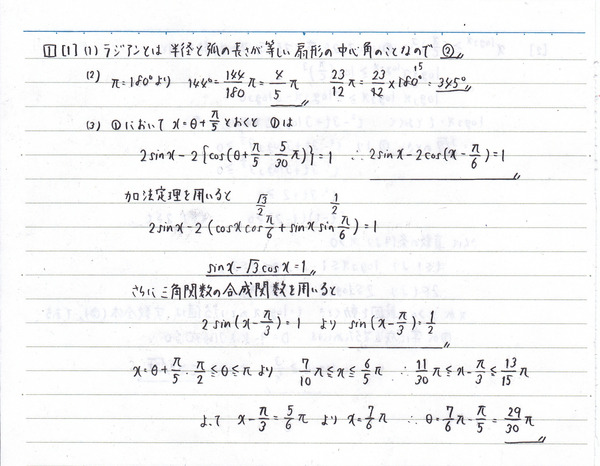 1 [1] (1) ラジアンとは 半径と弧の長さが等しい 扇形の中心角のことなので ②
(2) π=180°より 144°=144/180 π=4/5 π 23/12 π=23/12×180°=345° 15
(3) ①において x=θ+π/5 とおくと ①は
2sinx-2{cos(θ+π/5-5/30 π)}=1 ∴ 2sinx-2cos(x-π/6)=1
加法定理を用いると √3/2 1/2
2sinx-2(cosxcosπ/6+sinxsinπ/6)=1
sinx-√3cosx=1
さらに三角関数の合成関数を用いると
2sin(x-π/3)=1 より sin(x-π/3)=1/2
x=θ+π/5. π/2≦θ≦π より 7/10 π≦x≦6/5 π ∴ 11/30 π≦x-π/3≦13/15 π
よって x-π/3=5/6 π より x=7/6 π ∴ θ=7/6 π-π/5=29/30 π